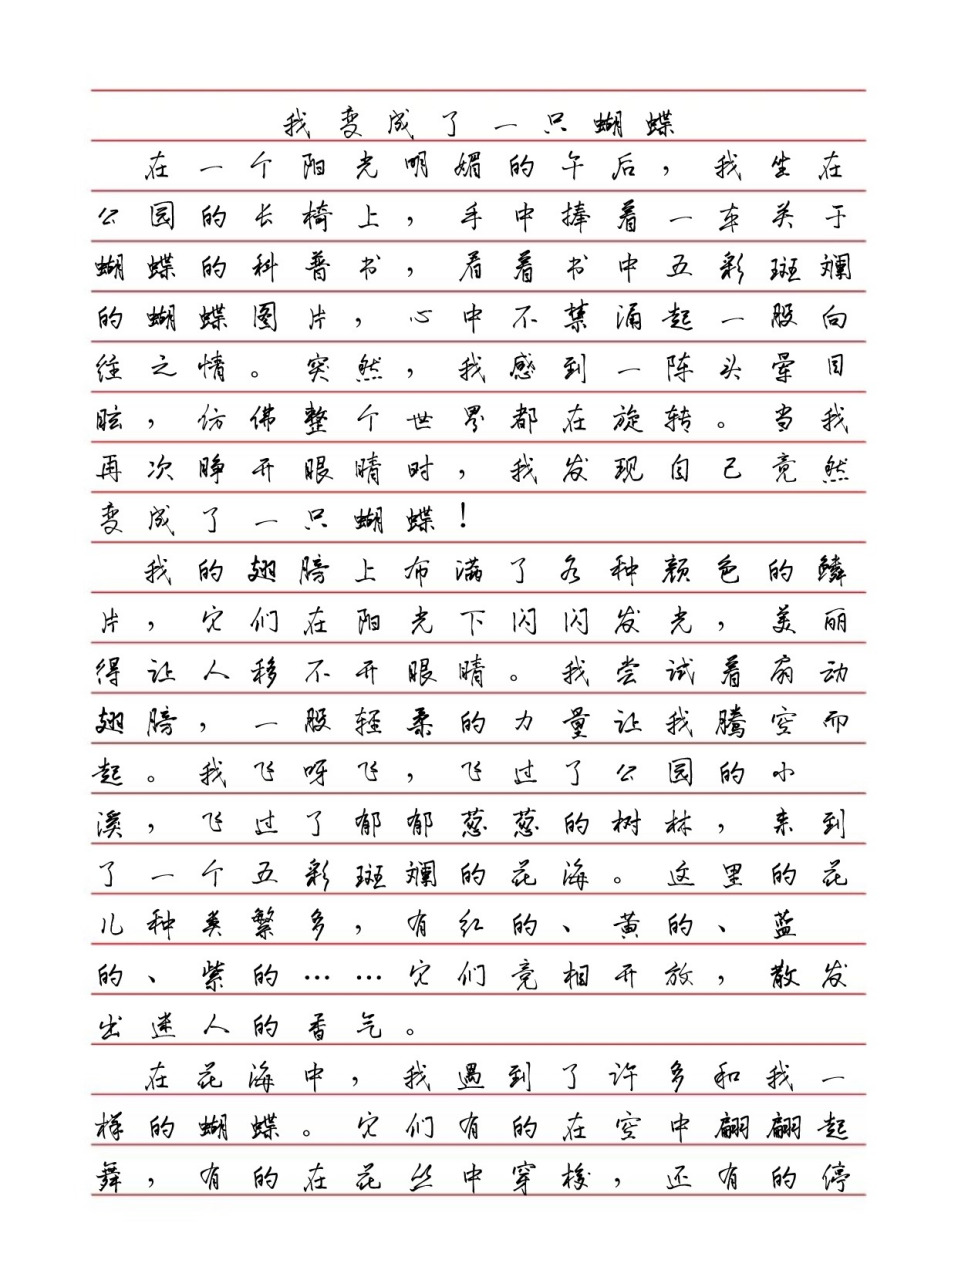 我变成了一只蝴蝶
在一个阳光明媚的午后，我坐在
公园的长椅上，手中捧着一本关于
蝴蝶的科普书，看着书中五彩斑斓
的蝴蝶图片，心中不禁涌起一股向
往之情。突然，我感到一阵头晕目
眩，仿佛整个世界都在旋转。当我
再次睁开眼睛时，我发现自己竟然
变成了一只蝴蝶！
我的翅膀上布满了各种颜色的鳞
片，它们在阳光下闪闪发光，美丽
得让人移不开眼睛。我尝试着扇动
翅膀，一股轻柔的力量让我腾空而
起。我飞呀飞，飞过了公园的小
溪，飞过了郁郁葱葱的树林，来到
了一个五彩斑斓的花海。这里的花
儿种类繁多，有红的、黄的、蓝
的、紫的……它们竞相开放，散发
出迷人的香气。
在花海中，我遇到了许多和我一
样的蝴蝶。它们有的在空中翩翩起
舞，有的在花丛中穿梭，还有的停